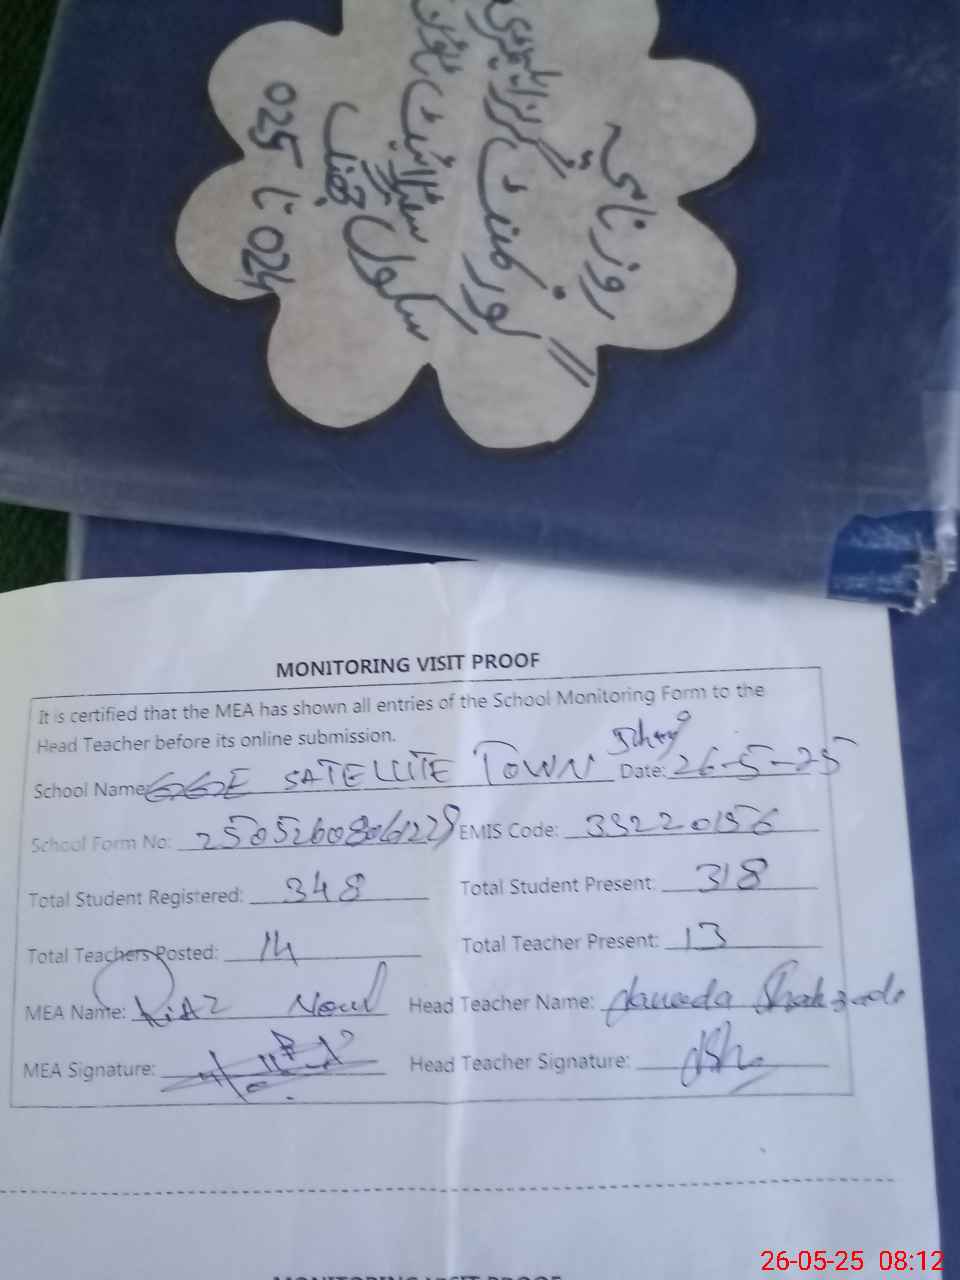 روزنامچہ
گورنمنٹ گرلز ایلیمنٹری
سکول سیٹلائیٹ ٹاؤن
جھنگ
024 تا 025
MONITORING VISIT PROOF
It is certified that the MEA has shown all entries of the School Monitoring Form to the
Head Teacher before its online submission.
School Name GGE SATELLITE TOWN Jhang Date: 26-5-25
School Form No: EMIS Code: 33220156
Total Student Registered: 348 Total Student Present: 318
Total Teachers Posted: 14 Total Teacher Present: 13
MEA Name: Riaz Head Teacher Name:
MEA Signature: Head Teacher Signature:
MONITORING VISIT PROOF
26-05-25 08:12